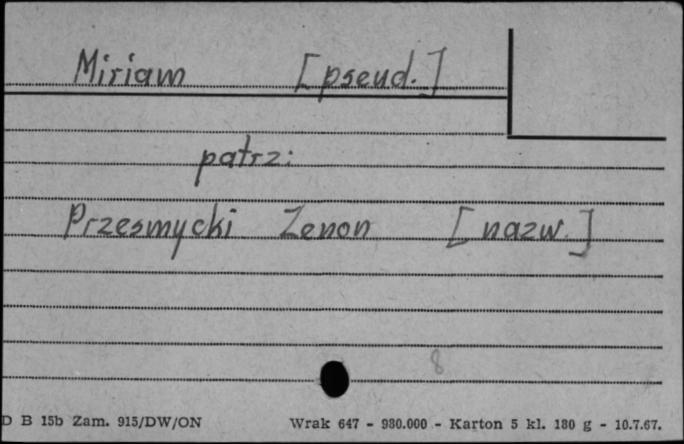 Miriam [pseud.]
patrz:
Przesmycki Zenon [nazw.]
8
D B 15b Zam. 915/DW/ON Wrak 647 - 980.000 - Karton 5 kl. 180 g - 10.7.67.